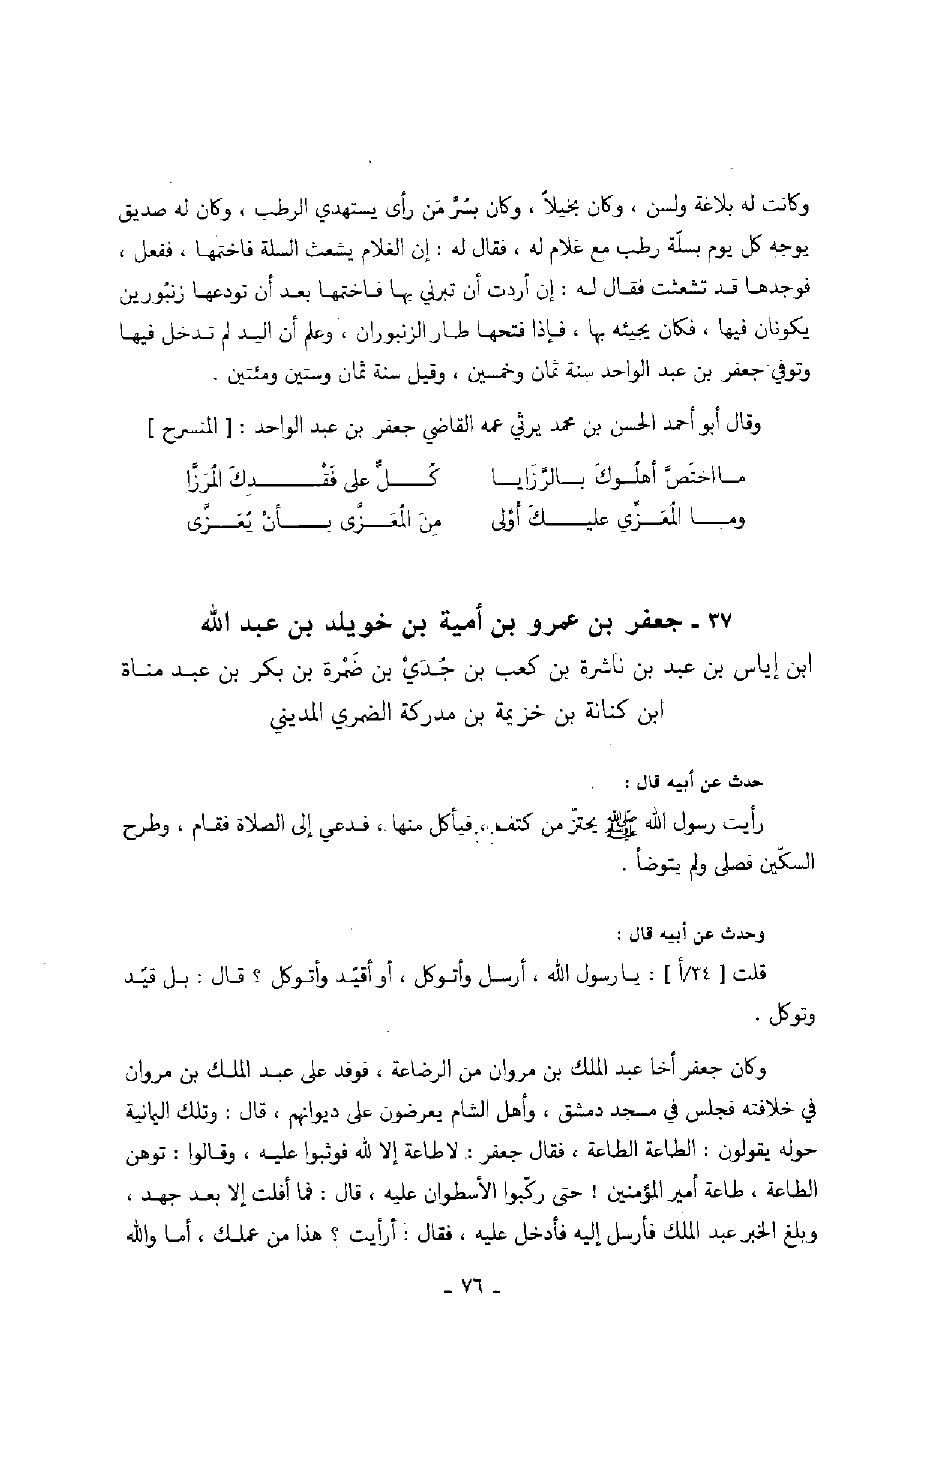 وكانت له بلاغة ولسن ، وكان بخيلاً ، وكان بسُرَّ مَن رأى يستهدي الرطب ، وكان له صديق
يوجه كل يوم بسلّة رطب مع غلام له ، فقال له : إن الغلام يشعث السلة فاختمها ، ففعل ،
فوجدها قد تشعثت فقال له : إن أردت أن تبرني بها فاختمها بعد أن تودعها زنبورين
يكونان فيها ، فكان يجيئه بها ، فإذا فتحها طار الزنبوران ، وعلم أن اليد لم تدخل فيها
وتوفي جعفر بن عبد الواحد سنة ثمان وخمسين ، وقيل سنة ثمان وستين ومئتين .
وقال أبو أحمد الحسن بن محمد يرثي عمه القاضي جعفر بن عبد الواحد : [ المنسرح ]
ما اختصَّ أهلُوكَ بالرَّزايا كُلٌّ على فَقْدِكَ المُرَزَّا
وما المُعَزَّى عليكَ أوْلى مِنَ المُعَزَّي بأنْ يُعَزَّى
٣٧ ـ جعفر بن عمرو بن أمية بن خويلد بن عبد الله
ابن إياس بن عبد بن ناشرة بن كعب بن جُدَيْ بن ضَمْرة بن بكر بن عبد مناة
ابن كنانة بن خزيمة بن مدركة الضمري المديني
حدث عن أبيه قال :
رأيت رسول الله ﷺ يحتزّ من كتف ، فيأكل منها ، فدعي إلى الصلاة فقام ، وطرح
السكّين فصلى ولم يتوضأ .
وحدث عن أبيه قال :
قلت [ ٢٤/أ ] : يا رسول الله ، أرسل وأتوكل ، أو أقيّد وأتوكل ؟ قال : بل قيّد
وتوكل .
وكان جعفر أخا عبد الملك بن مروان من الرضاعة ، فوفد على عبد الملك بن مروان
في خلافته فجلس في مسجد دمشق ، وأهل الشام يعرضون على ديوانهم ، قال : وتلك اليمانية
حوله يقولون : الطاعة الطاعة ، فقال جعفر : لا طاعة إلا لله فوثبوا عليه ، وقالوا : توهن
الطاعة ، طاعة أمير المؤمنين ! حتى ركّبوا الأسطوان عليه ، قال : فما أفلت إلا بعد جهد ،
وبلغ الخبر عبد الملك فأرسل إليه فأدخل عليه ، فقال : أرأيت ؟ هذا من عملك ، أما والله
ـ ٧٦ ـ